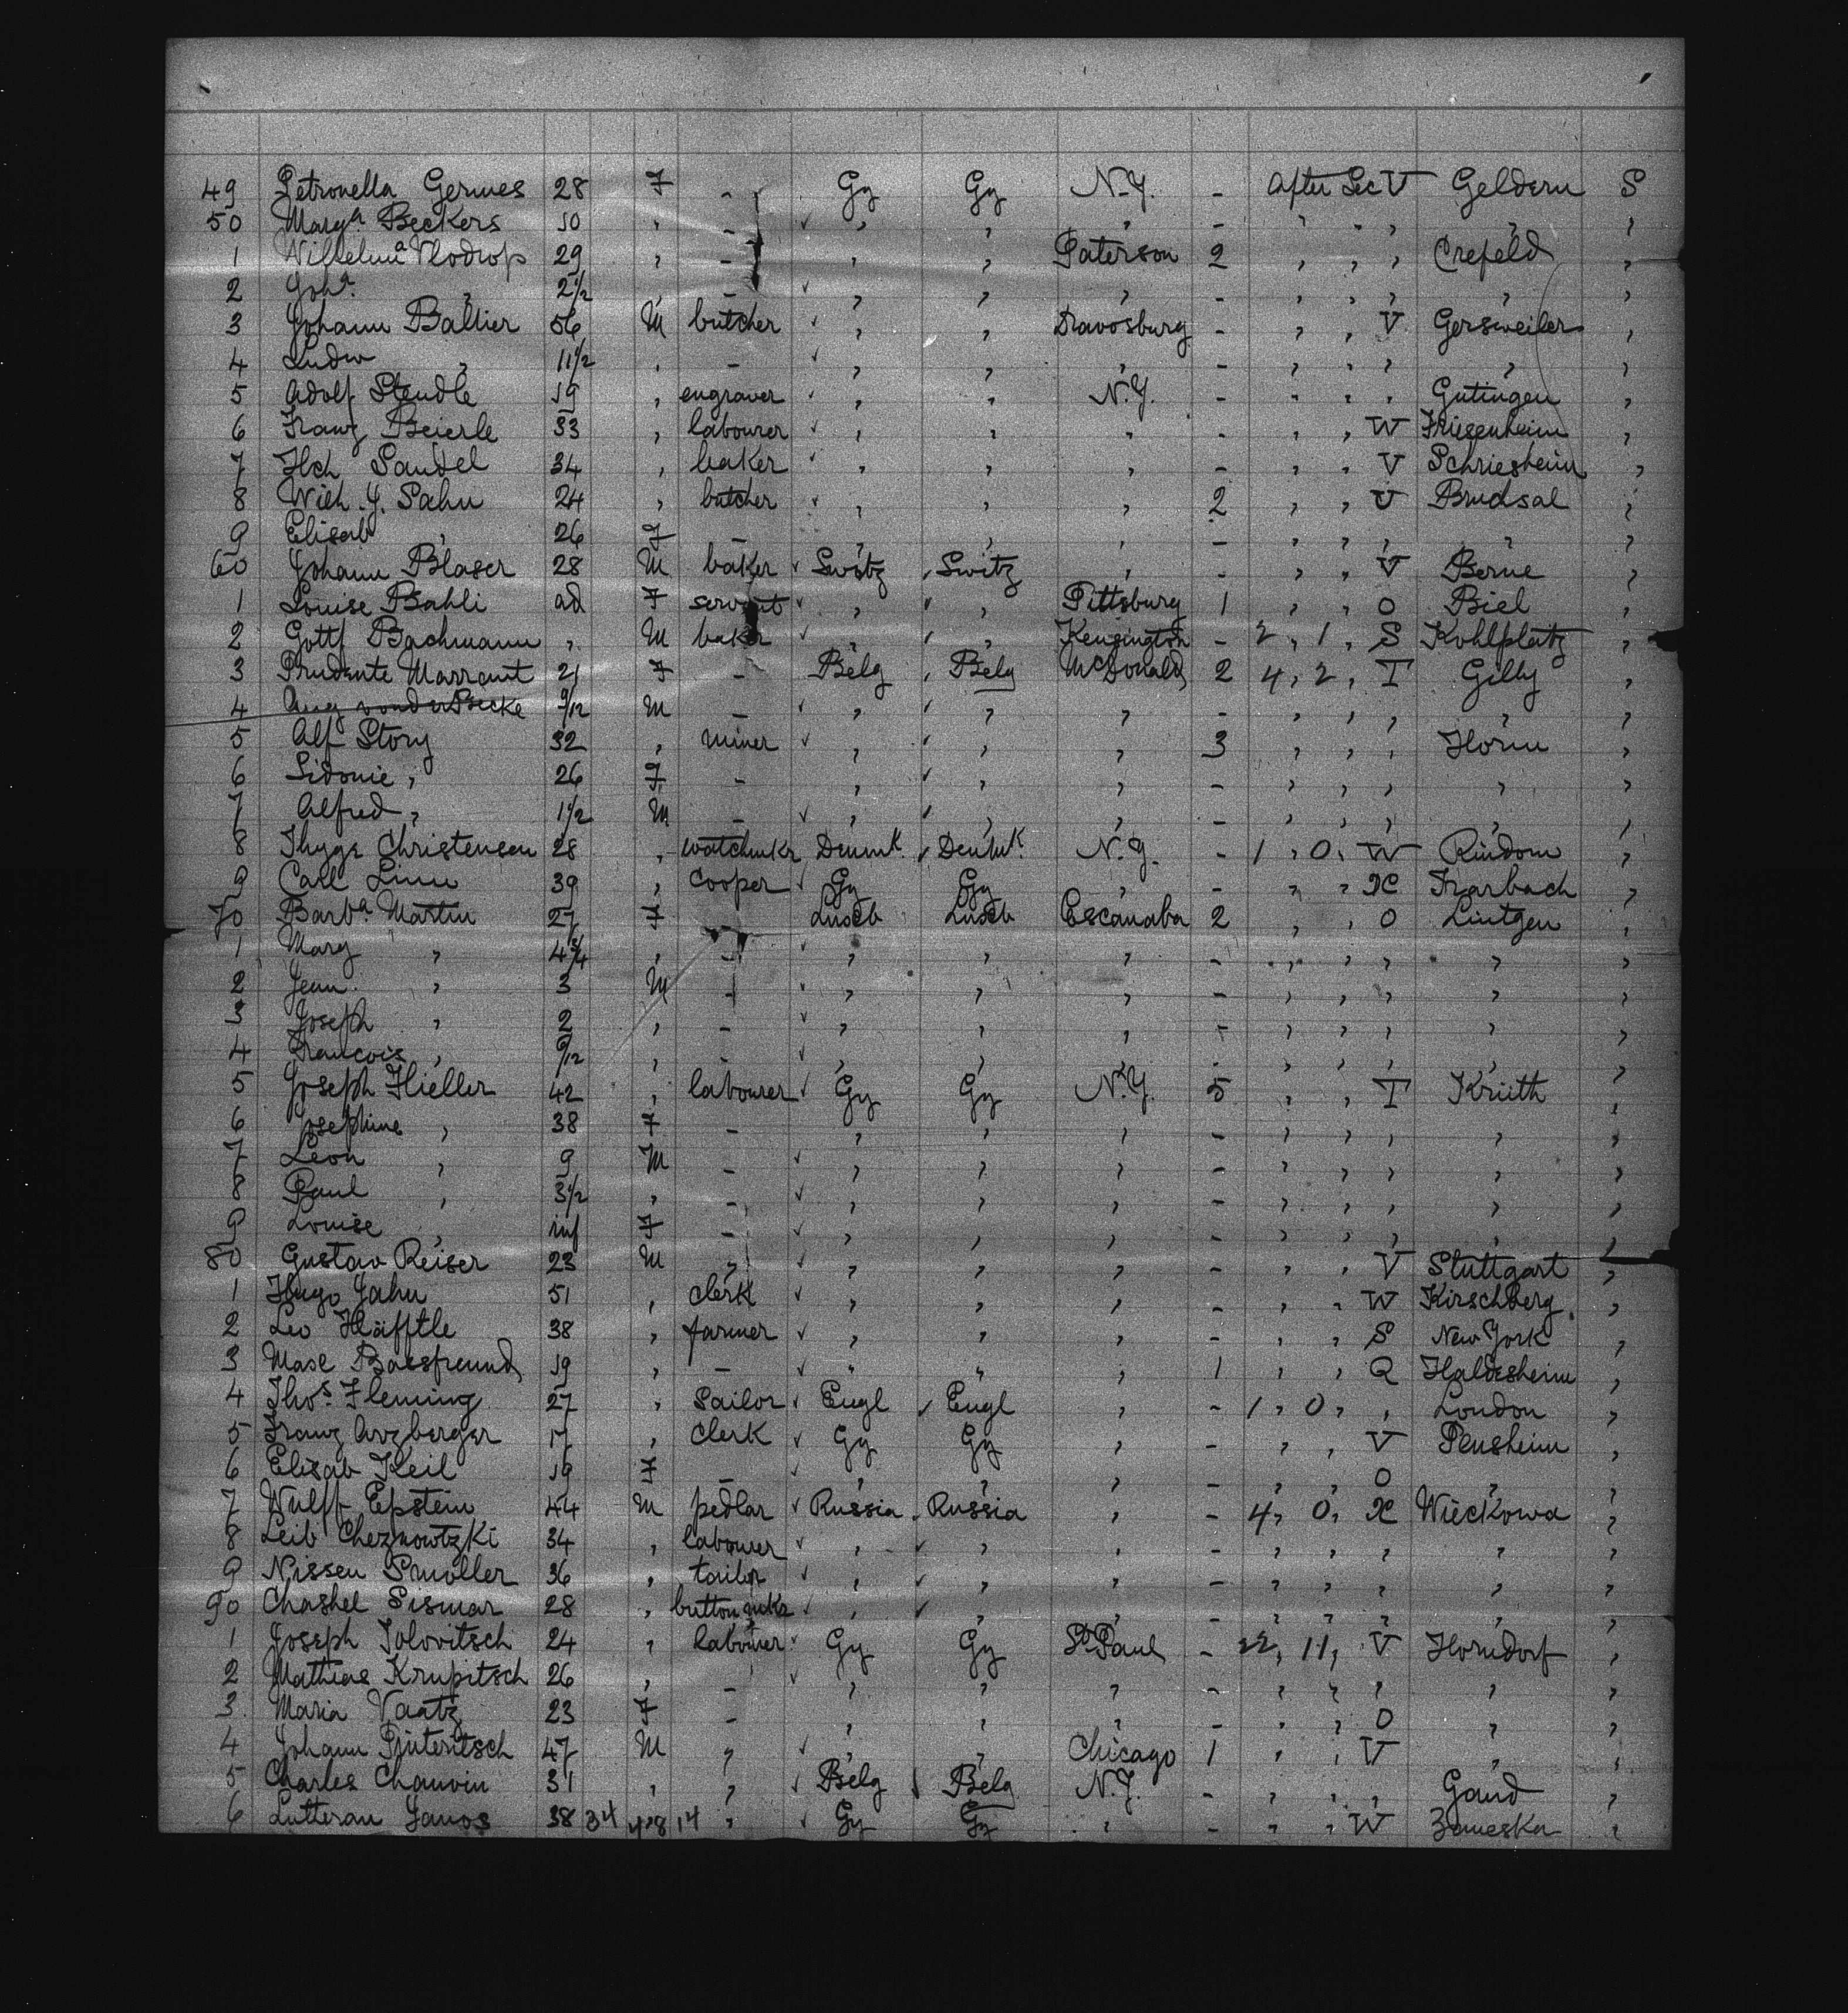 49 Petronella Germes 28 F - Gy Gy N.Y. - After Sec V Geldern S
50 Marg.a Beckers 10 , - , , , - , , , , ,
1 Wilhelm.a Vlodrop 29 , - , , Paterson 2 , , , Crefeld ,
2 Joh.a , 2 1/2 , - , , , - , , , , ,
3 Johann Ballier 56 M butcher , , Dravosburg - , , V Gersweiler ,
4 Ludw , 11 1/2 , - , , , - , , , , ,
5 Adolf Stendle 19 , engraver , , N.Y. - , , , Gutingen ,
6 Franz Beierle 33 , labourer , , , - , , W Friesenheim ,
7 Hch Sandel 34 , baker , , , - , , V Schriesheim ,
8 Wilh. J. Sahn 24 , butcher , , , 2 , , V Brudsal ,
9 Elisab , 26 F - , , , - , , , , ,
60 Johann Blaser 28 M baker Switz Switz , - , , V Berne ,
1 Louise Bahli ad F servant , , Pittsburg 1 , , O Biel ,
2 Gottf Bachmann , M baker , , Kensington - 2, 1, S Kohlplatz ,
3 Prudente Marrant 21 F - Belg Belg McDonald 2 4, 2, T Gilly ,
4 Aug vonderBecke 9/12 M - , , , - , , , , ,
5 Alf Story 32 , miner , , , 3 , , , Hornu ,
6 Sidonie , 26 F - , , , - , , , , ,
7 Alfred , 1 1/2 M - , , , - , , , , ,
8 Thyge Christensen 28 , watchmkr Denmk. Denmk. N.Y. - 1, 0, W Rindom ,
9 Carl Linn 39 , cooper Gy Gy , - , , X Trarbach ,
70 Barb.a Martin 27 F Luxb Luxb Escanaba 2 , , O Lintgen ,
1 Mary , 4 3/4 , - , , , - , , , , ,
2 Jean , 3 M - , , , - , , , , ,
3 Joseph , 2 , - , , , - , , , , ,
4 Francois , 6/12 , - , , , - , , , , ,
5 Joseph Hieller 42 , labourer Gy Gy N.Y. 5 , , T Krüth ,
6 Josephine , 38 F - , , , - , , , , ,
7 Leon , 9 M - , , , - , , , , ,
8 Paul , 3 1/2 , - , , , - , , , , ,
9 Louise , inf F - , , , - , , , , ,
80 Gustav Reiser 23 M , , , , - , , V Stuttgart ,
1 Hugo Jahn 51 , clerk , , , - , , W Kirschberg ,
2 Leo Häfftle 38 , farmer , , , - , , S New York ,
3 Max Baesfreund 19 , - , , , 1 , , Q Haldesheim ,
4 Thos. Fleming 27 , sailor Engl Engl , - 1, 0, , London ,
5 Franz Arzberger 17 , clerk Gy Gy , - , , V Pensheim ,
6 Elisab Keil 19 F - , , , - , , O , ,
7 Wulff Epstein 44 M pedlar Russia Russia , - 4, 0, X Wieckowa ,
8 Leib Cheznowitzki 34 , labourer , , , - , , , , ,
9 Nissen Smoller 36 , tailor , , , - , , , , ,
90 Chashel Sismar 28 , button mkr , , , - , , , , ,
1 Joseph Jolovitsch 24 , labourer Gy Gy St Paul - 22, 11, V Horndorf ,
2 Mathias Krupitsch 26 , - , , , - , , , , ,
3 Maria Vaatz 23 F - , , , - , , O , ,
4 Johann Pinteritsch 47 M , , , Chicago 1 , , V , ,
5 Charles Chauvin 31 , , Belg Belg N.Y. - , , , Gand ,
6 Lutteran Janos 38 34 4.8 14 , Gy Gy , - , , W Zameska ,